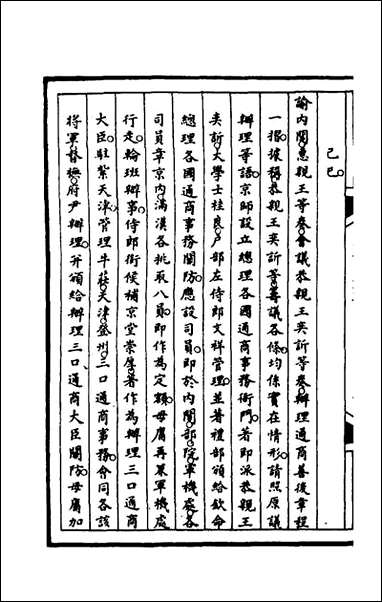 己巳
諭內閣惠親王等奏會議恭親王奕訢等奏辦理通商善後章程
一摺據稱恭親王奕訢等籌議各條均係實在情形請照原議
辦理等語京師設立總理各國通商事務衙門著即派恭親王
奕訢大學士桂良戶部左侍郎文祥管理並著禮部頒給欽命
總理各國通商事務關防應設司員即於內閣部院軍機處各
司員章京內滿漢各挑取八員即作為定額毋庸再兼軍機處
行走輪班辦事侍郎銜候補京堂崇厚著作為辦理三口通商
大臣駐紮天津管理牛莊天津登州三口通商事務會同各該
將軍督撫府尹辦理并頒給辦理三口通商大臣關防毋庸加